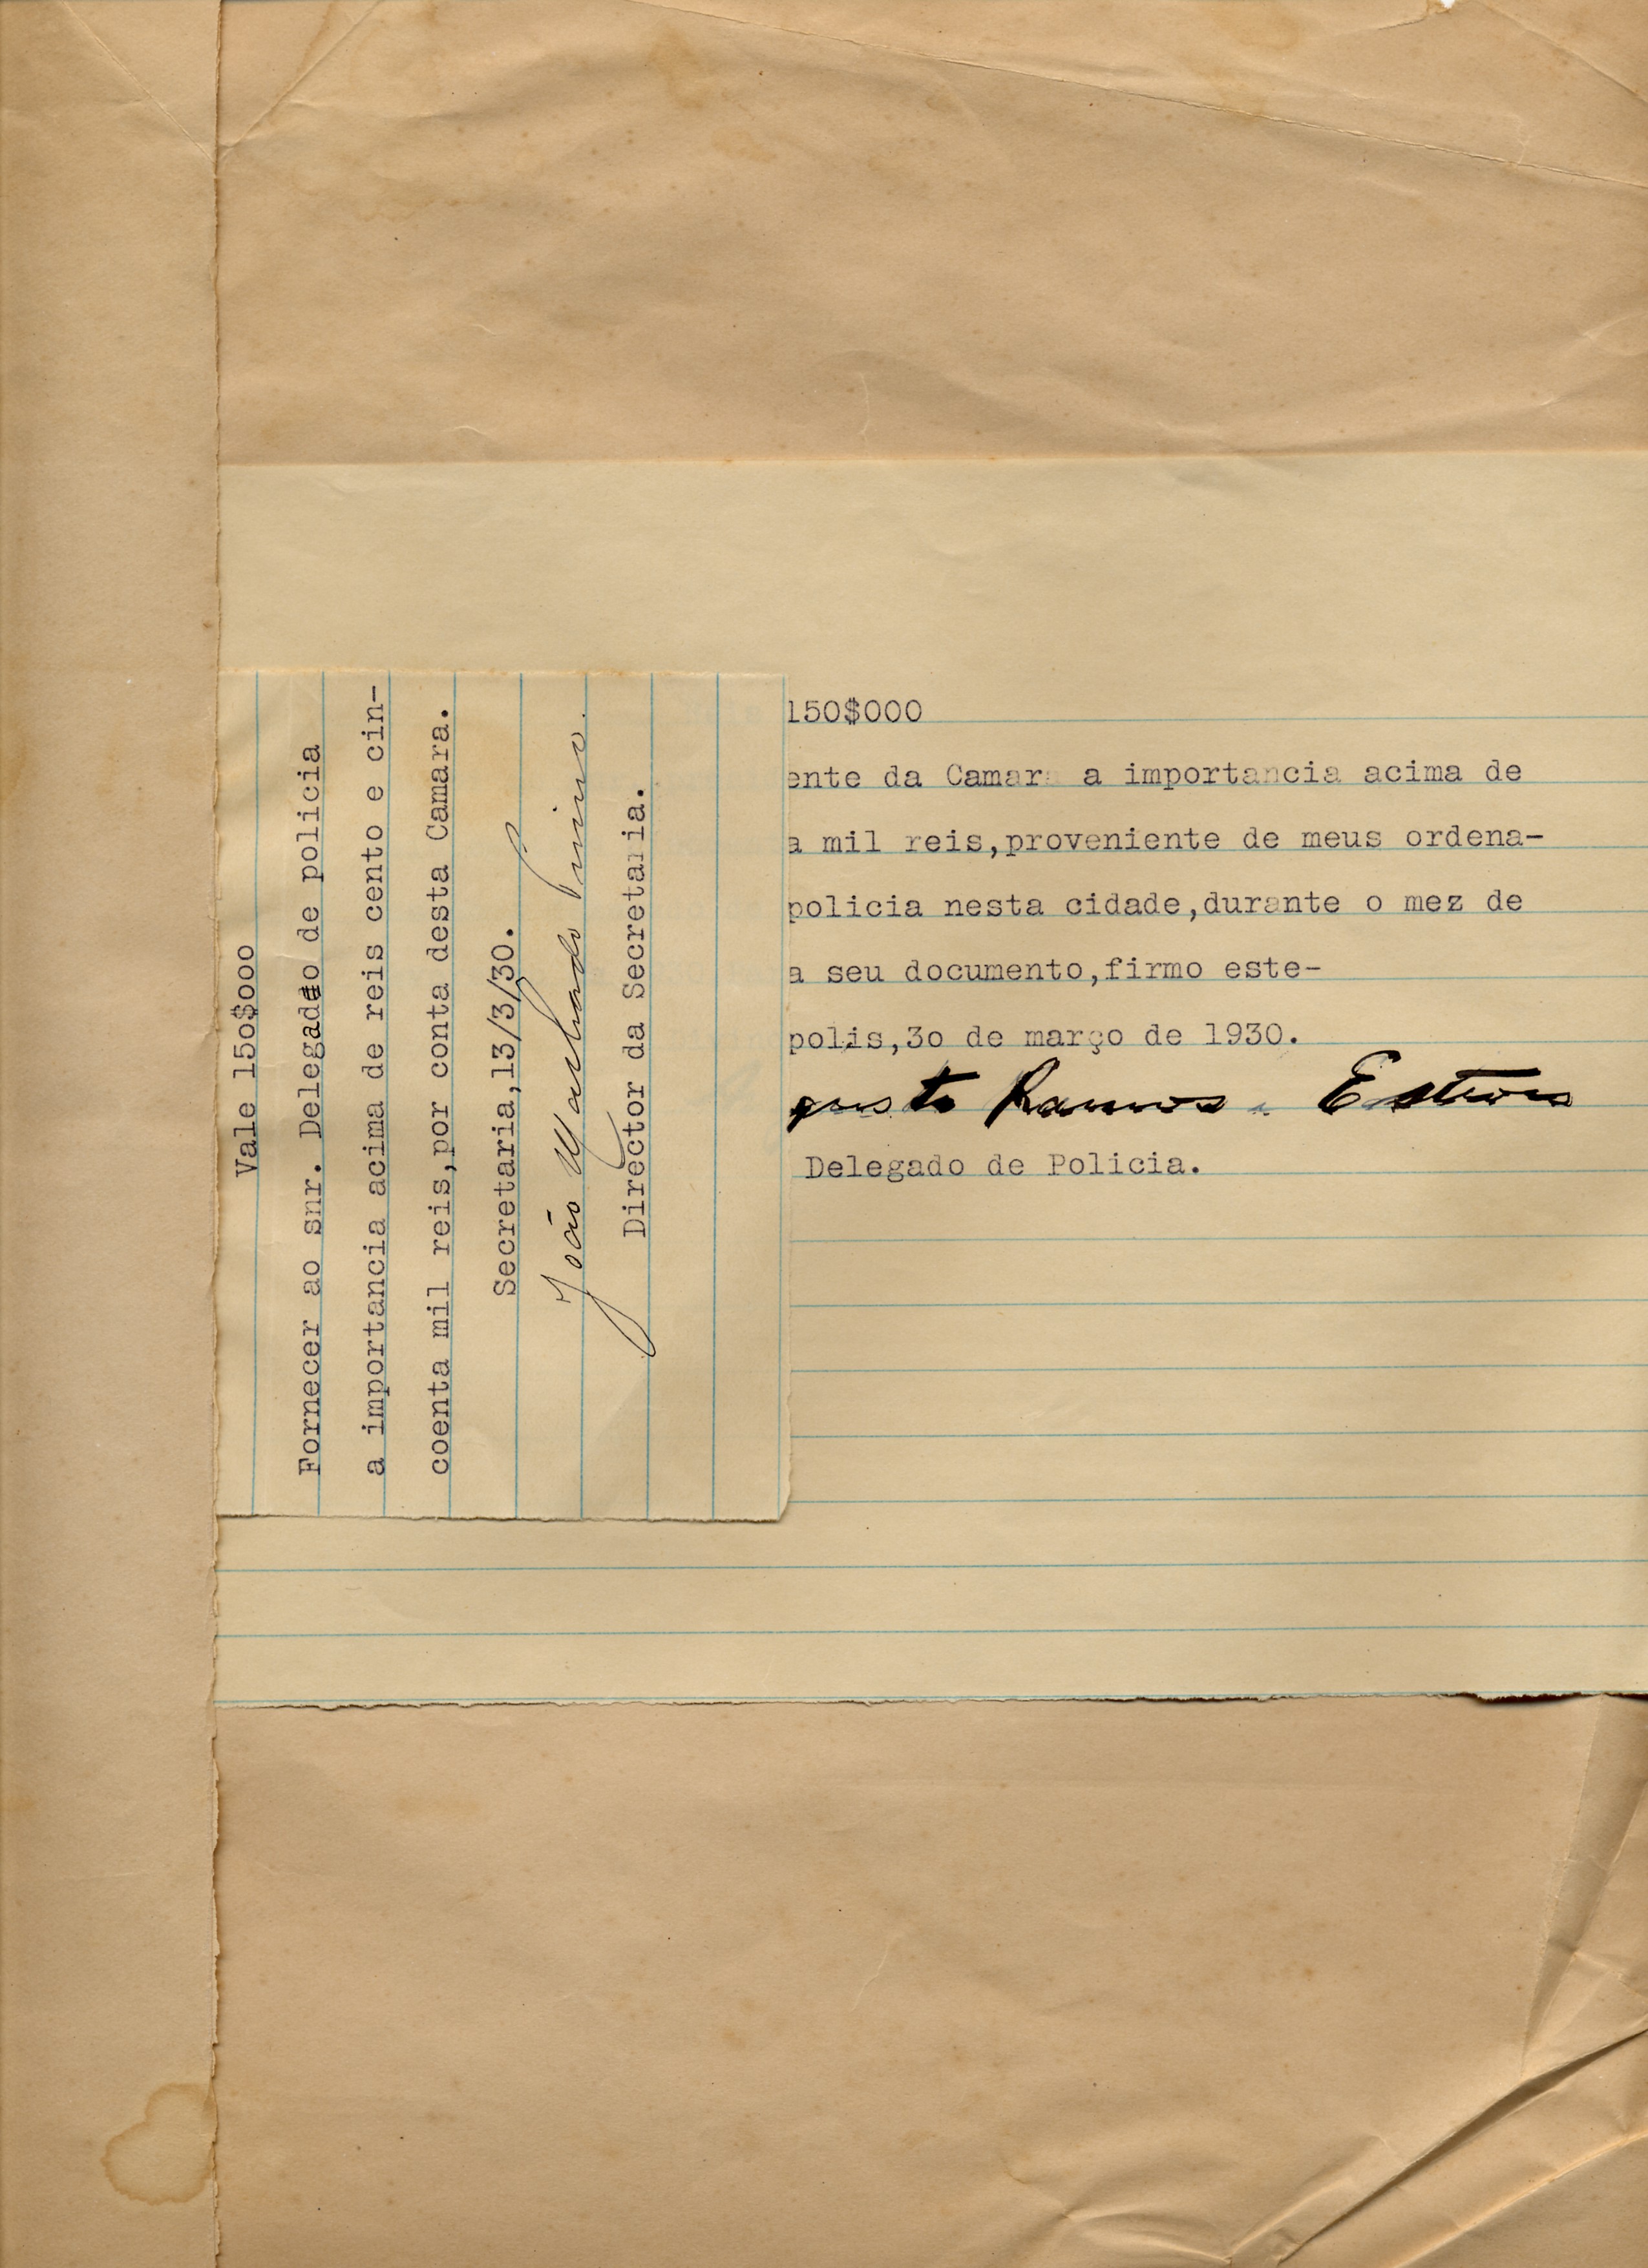 Vale 150$000
Fornecer ao snr. Delegado de policia
a importancia acima de reis cento e cin-
coenta mil reis,por conta desta Camara.
Secretaria,13/3/30.
João Machado
Director da Secretaria.
150$000
ente da Camara a importancia acima de
a mil reis,proveniente de meus ordena-
policia nesta cidade,durante o mez de
a seu documento,firmo este-
polis,30 de março de 1930.
gusto Ramos
Delegado de Policia.